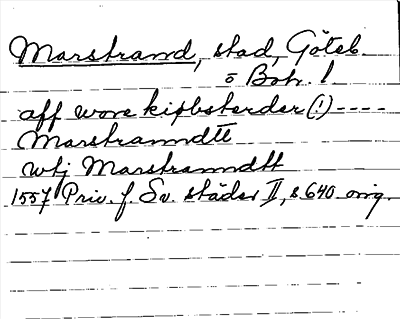 Marstrand, stad, Göteb.
o Boh. l.
aff wore kiøbsterder (!) ----
Marstranndtt
wtj Marstranndtt
1557 Priv. f. Sv. städer II, s 640 orig.